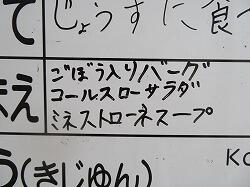 て
じょうずに食
まえ
ごぼう入りバーグ
コールスローサラダ
ミネストローネスープ
う(きじゅん)
KC